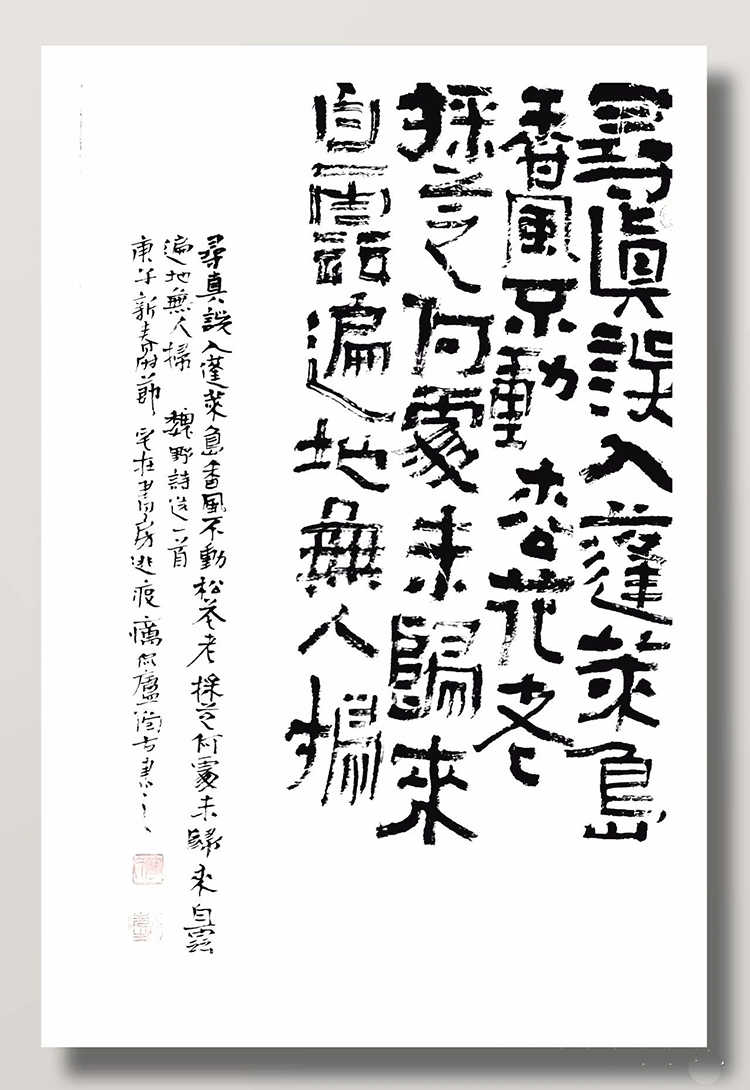 尋眞誤入蓬萊島
香風不動松花老
採芝何處未歸來
白雲遍地無人掃
尋真誤入蓬萊島香風不動松花老採芝何處未歸來白雲
遍地無人掃 魏野詩一首
庚子新春 宅在書房逃疫 廬 書之